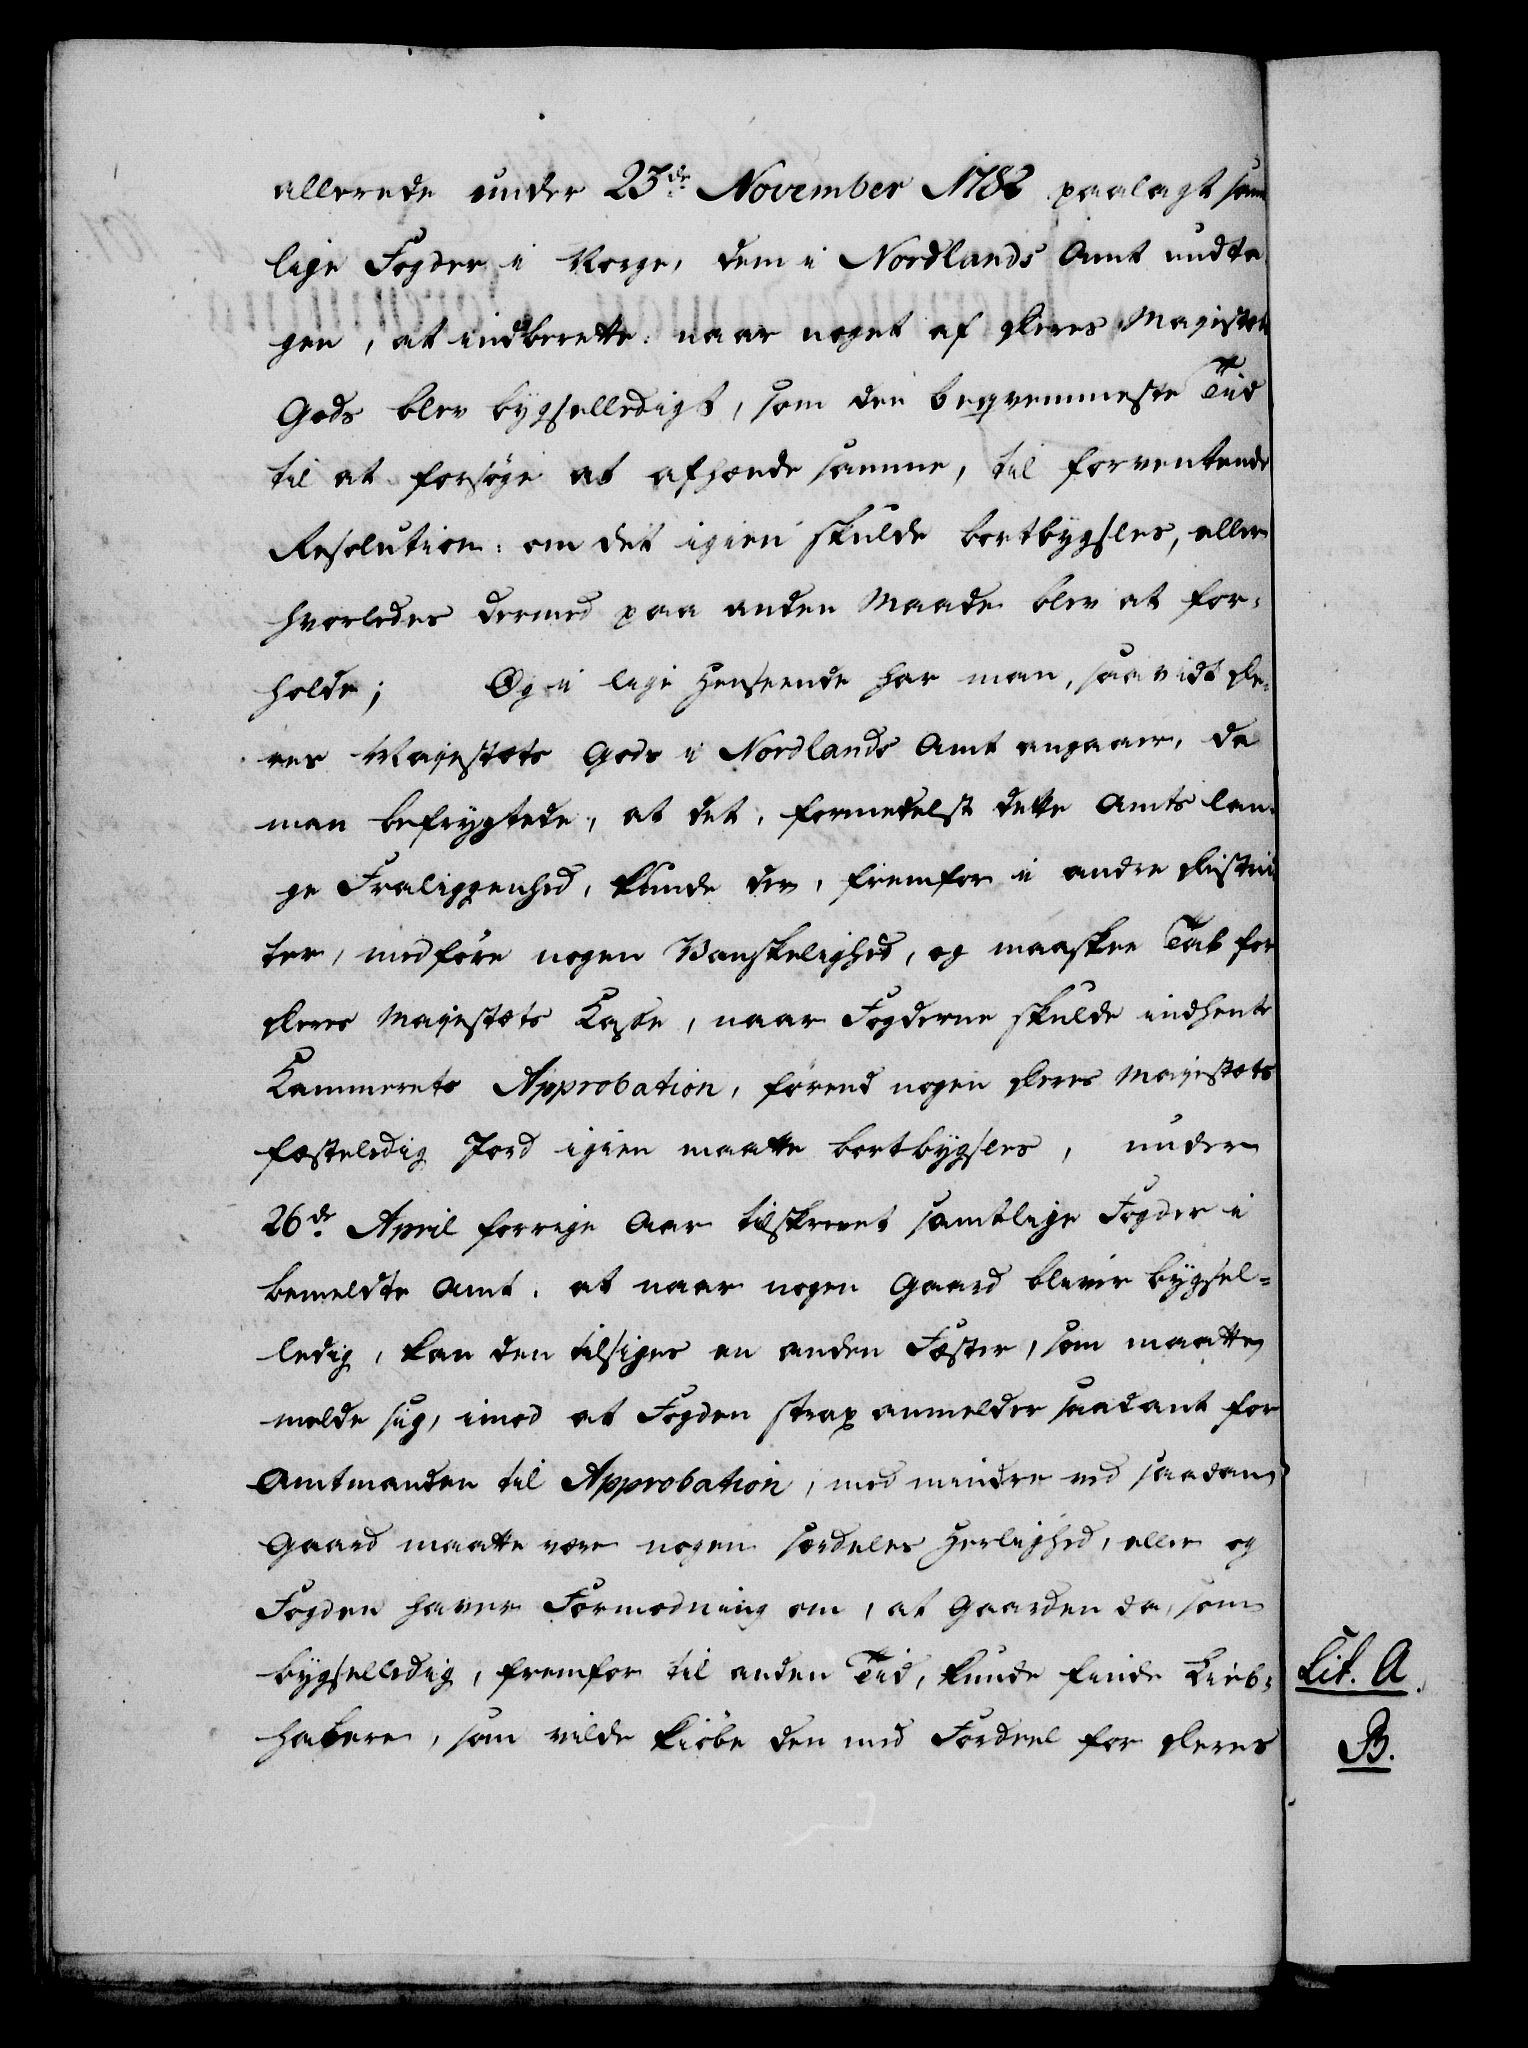 allerede under 23de November 1782 paalagt sam
lige Fogder i Norge, dem i Nordlands Amt undta
gen, at indberette: naar noget af Deres Majestæts
Gods blev bygselledigt, som den beqvemmeste Tiid
til at forsøge at afhænde samme, til forventende
Resolution: om det igien skulde bortbygsles, eller
hvorledes dermed paa anden Maade blev at for-
holde; Og i lige Henseende har man, saavidt De-
res Majestæts Gods i Nordlands Amt angaaer, da
man befrygtede, at det, formedelst dette Amts lan-
ge Fraliggenhed, kunde der, fremfor i andre Distric
ter, medføre nogen Vanskelighed, og maaskee Tab for
Deres Majestæts Casse, naar Fogderne skulde indhente
Cammerets Approbation, førend nogen Deres Majestæts
fæsteledig Jord igien maatte bortbygsles, under
26de April forrige Aar tilskrevet samtlige Fogder i
bemeldte Amt, at naar nogen Gaard bliver bygsel-
ledig, kan den tilsiges en anden Fæster, som maatte
melde sig, imod at Fogden strax anmelder saadant for
Amtmanden til Approbation, med mindre ved saadan
Gaard maatte være nogen særdeles Herlighed, eller og
Fogden haver Formodning om, at Gaarden da, som
bygselledig, fremfor til anden Tiid, kunde finde Lieb-
habere, som vilde kiøbe den med Fordeel for Deres
Lit. A.
B.